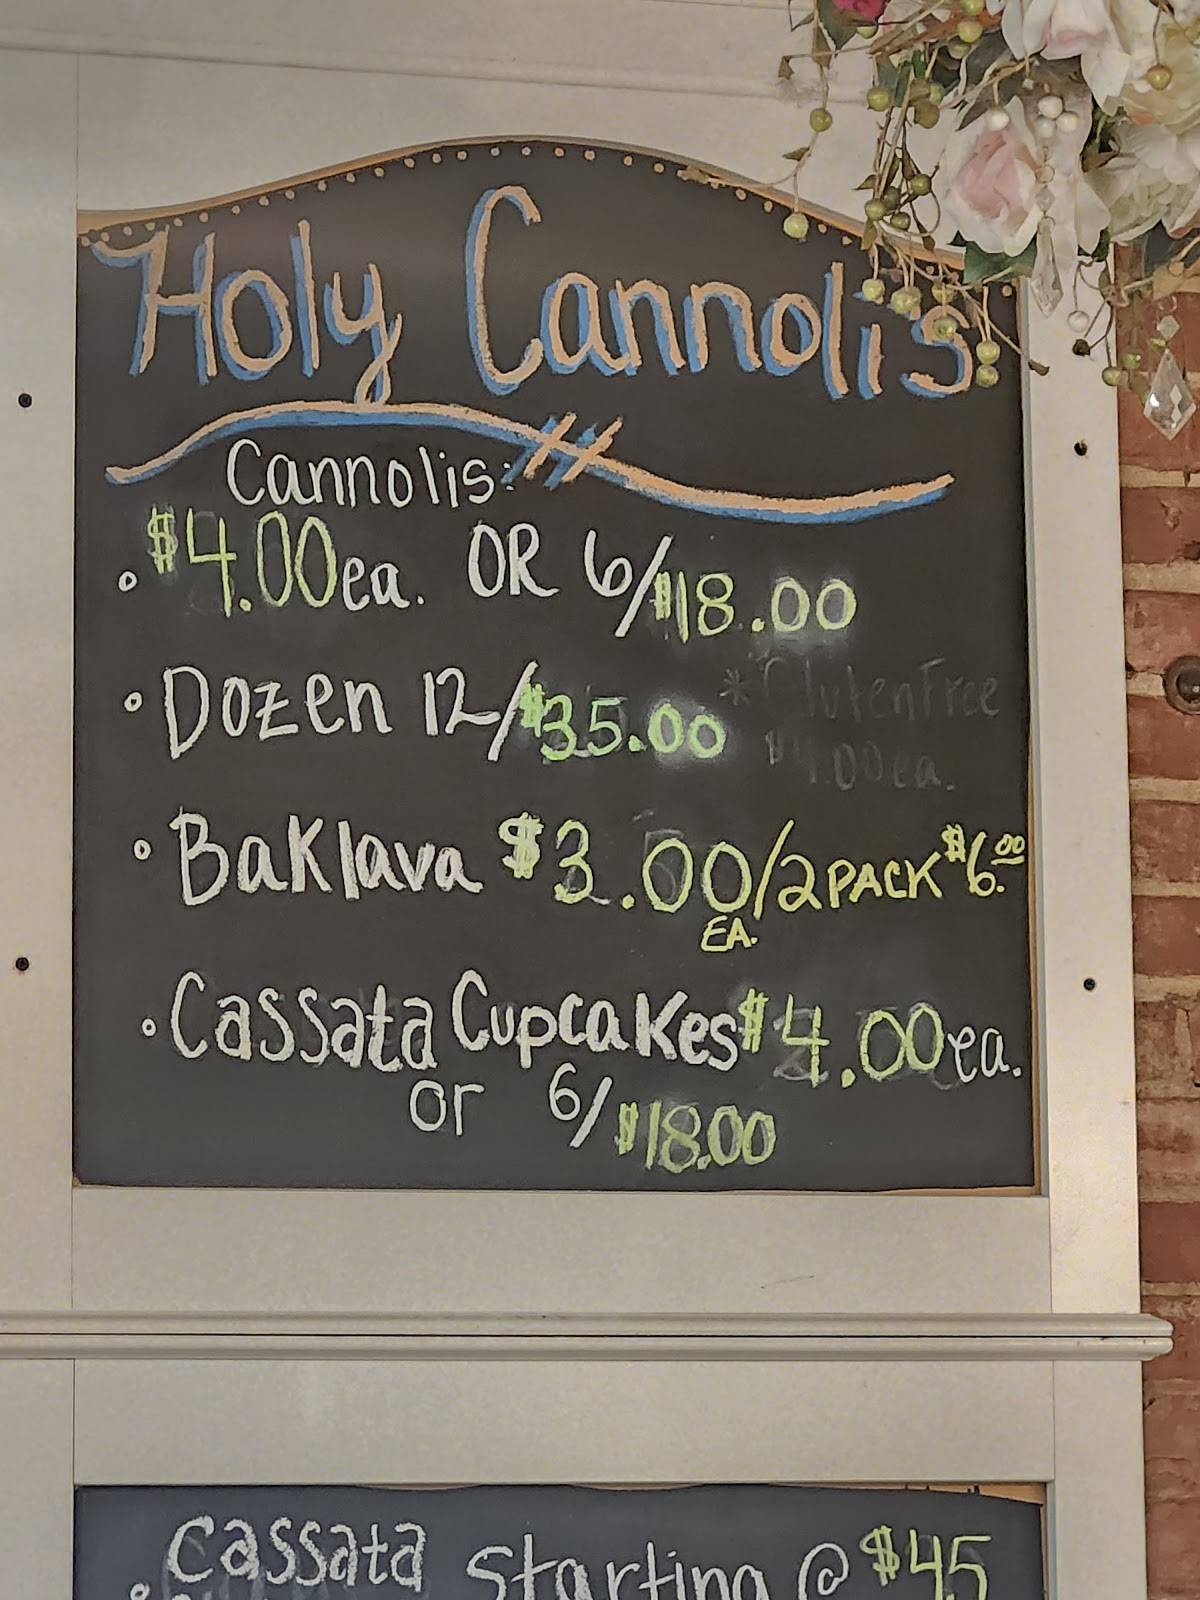 Holy Cannoli's
Cannolis:
$4.00ea. OR 6/$18.00
Dozen 12/$35.00
*Gluten Free
$4.00ea.
Baklava $3.00/2PACK $6.00
EA.
Cassata Cupcakes $4.00ea.
or 6/$18.00
Cassata Starting @ $45